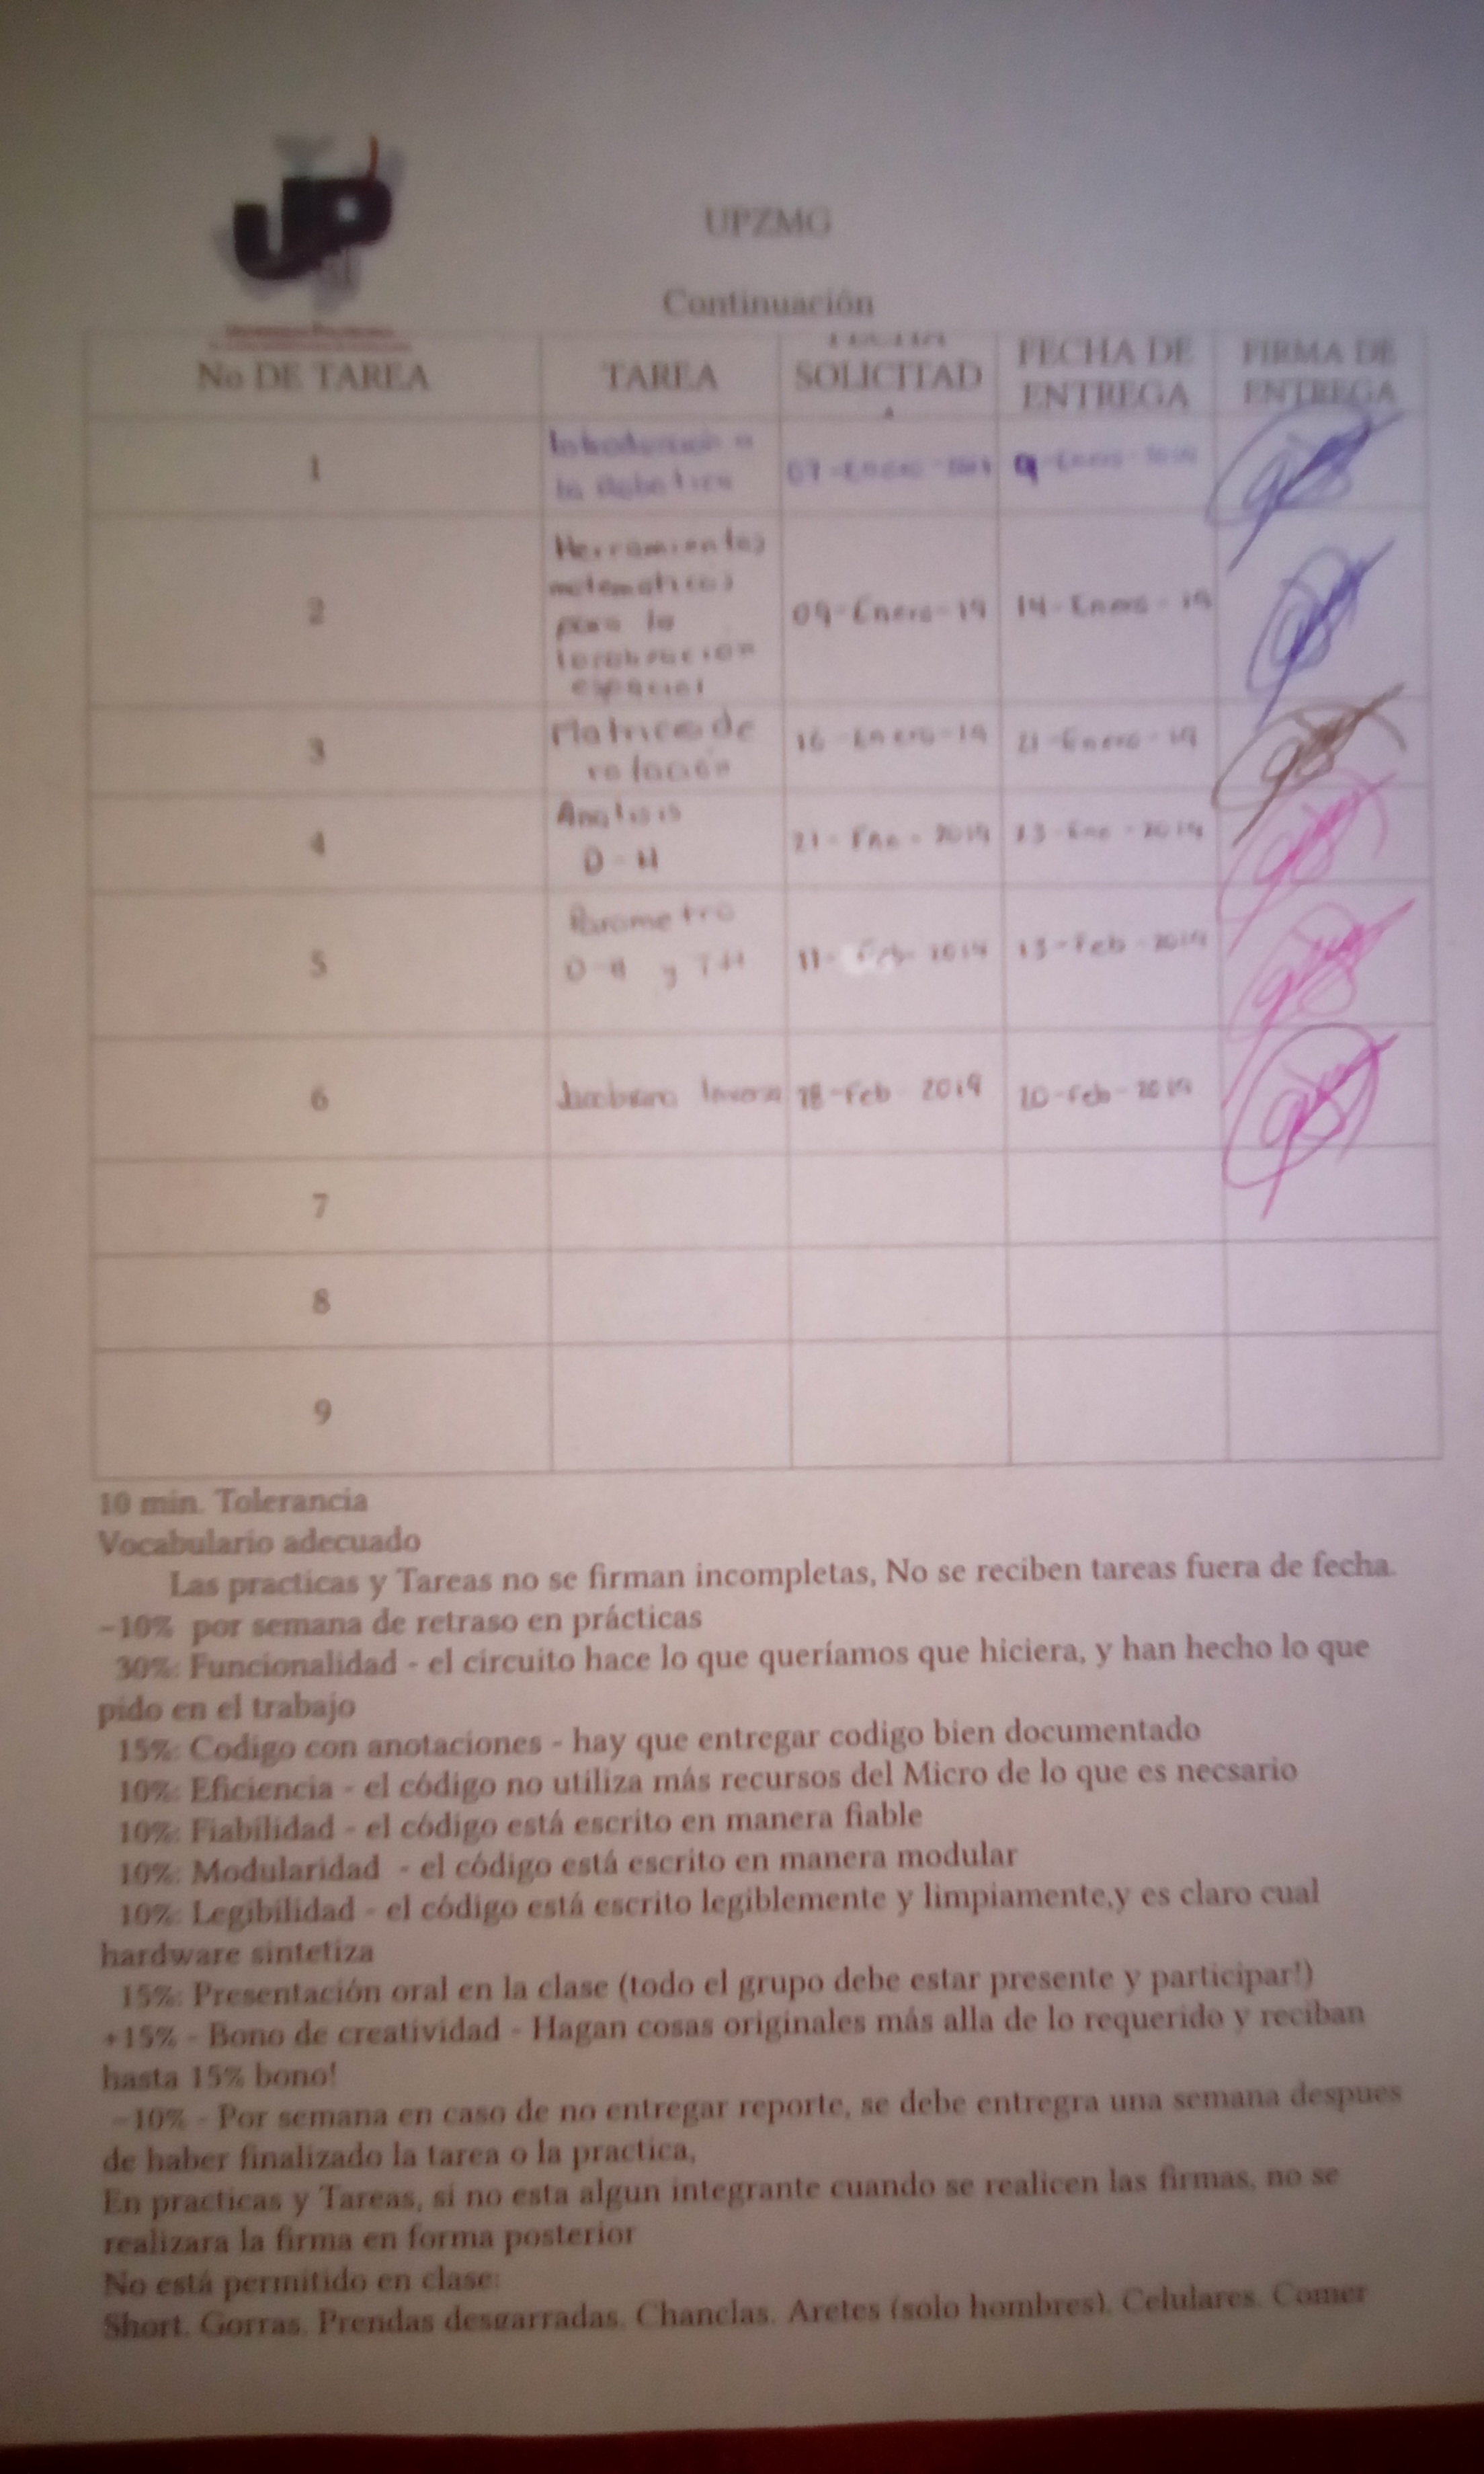 UP
UPZMG
Continuación
No DE TAREA TAREA FECHA SOLICITADA FECHA DE ENTREGA FIRMA DE ENTREGA
1 Introducción a la Robotica 07-Enero-2019 9-Enero-2019
2 Herramientas matematicas para la localización espacial 09-Enero-19 14-Enero-19
3 Matrices de rotación 16-Enero-19 21-Enero-19
4 Analisis D-H 21-Ene-2019 23-Ene-2019
5 Parametro D-H y TH 11-Feb-2019 13-Feb-2019
6 Jacobiano Inversa 18-Feb-2019 20-Feb-2019
7
8
9
10 min. Tolerancia
Vocabulario adecuado
Las practicas y Tareas no se firman incompletas, No se reciben tareas fuera de fecha.
-10% por semana de retraso en prácticas
30%: Funcionalidad - el circuito hace lo que queríamos que hiciera, y han hecho lo que
pido en el trabajo
15%: Codigo con anotaciones - hay que entregar codigo bien documentado
10%: Eficiencia - el código no utiliza más recursos del Micro de lo que es necsario
10%: Fiabilidad - el código está escrito en manera fiable
10%: Modularidad - el código está escrito en manera modular
10%: Legibilidad - el código está escrito legiblemente y limpiamente,y es claro cual
hardware sintetiza
15%: Presentación oral en la clase (todo el grupo debe estar presente y participar!)
+15% - Bono de creatividad - Hagan cosas originales más alla de lo requerido y reciban
hasta 15% bono!
-10% - Por semana en caso de no entregar reporte, se debe entregra una semana despues
de haber finalizado la tarea o la practica,
En practicas y Tareas, si no esta algun integrante cuando se realicen las firmas, no se
realizara la firma en forma posterior
No está permitido en clase:
Short. Gorras. Prendas desgarradas. Chanclas. Aretes (solo hombres). Celulares. Comer